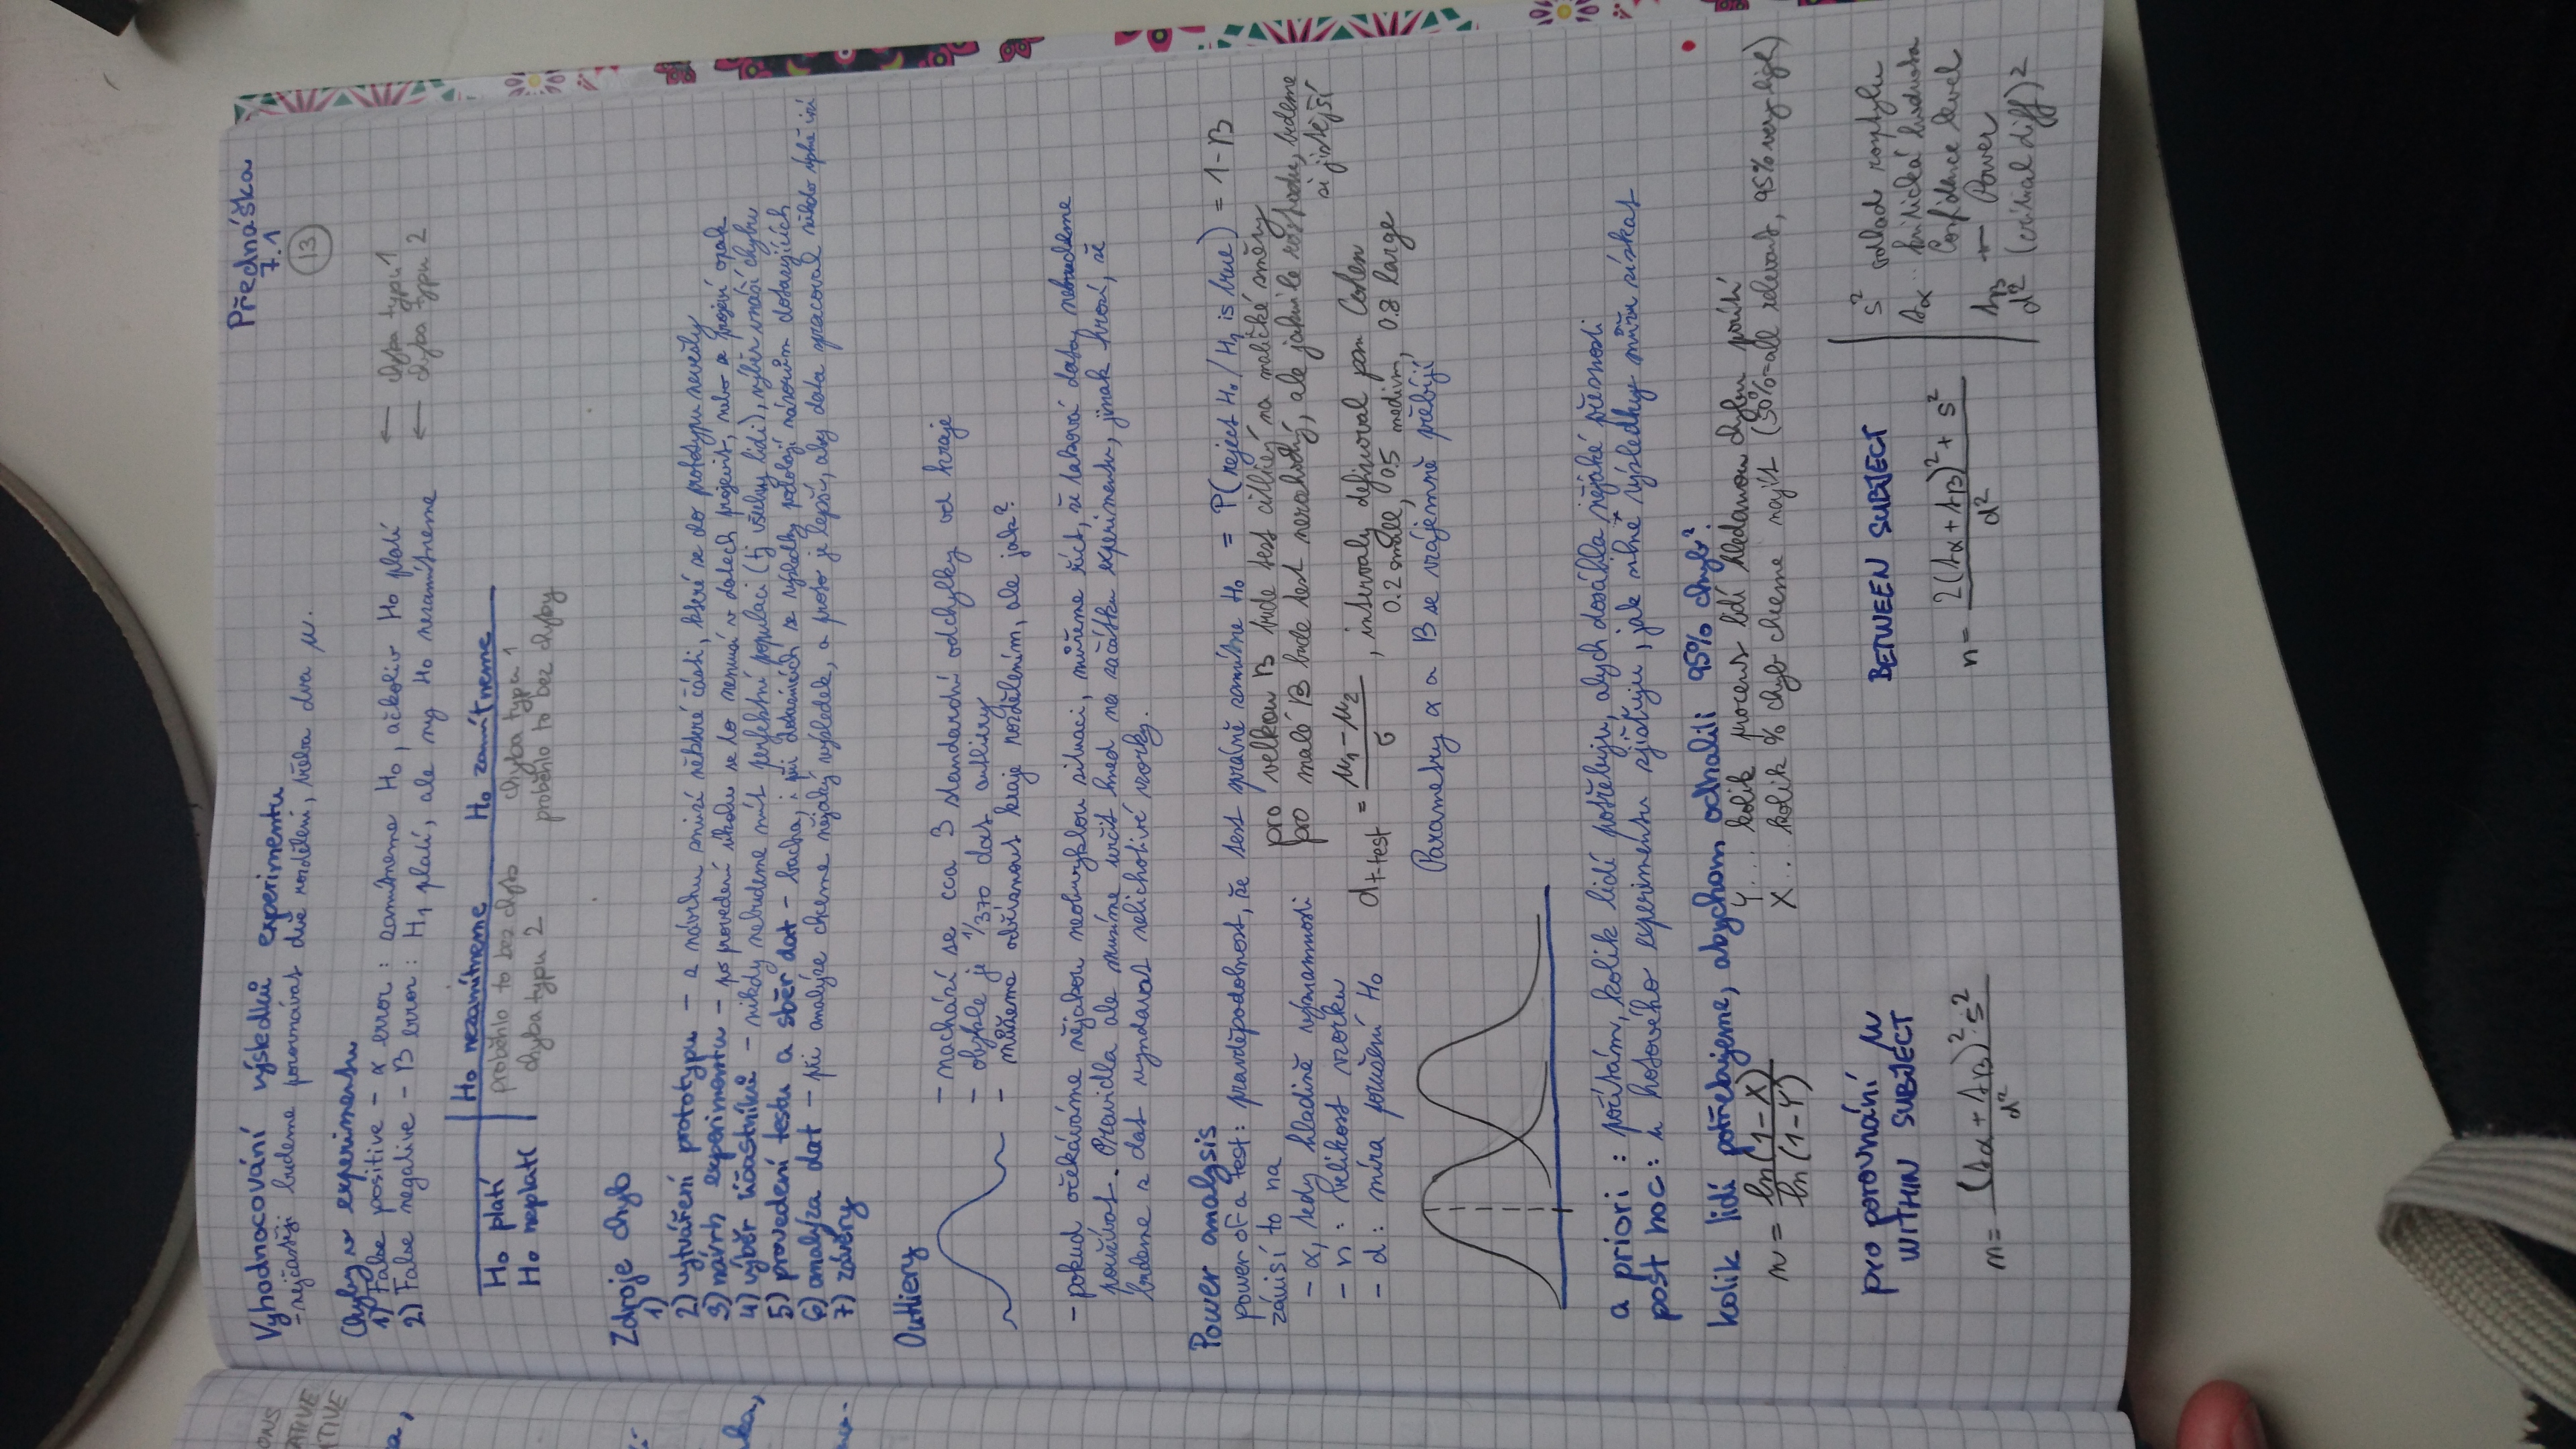 ONS
ATIVE
ATIVE
Přednáška
7.1
13
Vyhodnocování výsledků experimentu
- nejčastěji budeme porovnávat dvě rozdělení, třeba dva μ.
Chyby v experimentu
1) False positive - α error : zamítneme H0, ačkoliv H0 platí ← chyba typu 1
2) False negative - B error : H1 platí, ale my H0 nezamítneme ← chyba typu 2
H0 nezamítneme H0 zamítneme
H0 platí proběhlo to bez chyb chyba typu 1
H0 neplatí chyba typu 2 proběhlo to bez chyby
Zdroje chyb
1)
2) vytváření prototypu - z návrhu zmizí některé části, které se do prototypu nevešly
3) návrh experimentu - po provedení úkolu se to nemusí v datech projevit, nebo se projeví opak
4) výběr účastníků - nikdy nebudeme mít perfektní populaci (tj všechny lidi), výběr vnáší chybu
5) provedení testu a sběr dat - bacha, i při dotaznících se výsledky podobají názorům dotazujících
6) analýza dat - při analýze chceme nějaký výsledek, a proto je lepší, aby data zpracoval někdo úplně jiný
7) závěry
Outliery
- nachází se cca 3 standardní odchylky od kraje
- obykle je 1/370 dat outliery
- můžeme odříznout kraje rozdělením, ale jak?
- pokud očekáváme nějakou neobvyklou situaci, můžeme říct, že taková data nebudeme
používat. Pravidla ale musíme určit hned na začátku experimentu, jinak hrozí, že
budeme z dat vyndavat nelichotivé vzorky.
Power analysis
power of a test: pravděpodobnost, že test správně zamítne H0 = P(reject H0 / H1 is true) = 1 - B
závisí to na pro velkou B bude test citlivý na maličké směry
- α, tedy hladině významnosti pro malé B bude test nerozhodný, ale jakmile rozhodne, budeme
si jistější
- n : velikost vzorku
- d : míra porušení H0 d t-test = μ1 - μ2 / σ , intervaly definoval pan Cohen
0.2 small, 0.5 medium, 0.8 large
Parametry α a B se vzájemně přebíjí
a priori : počítám, kolik lidí potřebuju, abych dosáhla nějaké přesnosti
post hoc : u hotového experimentu zjišťuju, jak silné výsledky můžu získat
kolik lidí potřebujeme, abychom odhalili 95% chyb?
n = ln(1-X) / ln(1-Y) Y... kolik procent lidí hledanou chybu pocítí
X .. kolik % chyb chceme najít (50%=all relevant, 95% very high)
pro porovnání μ
WITHIN SUBJECT BETWEEN SUBJECT
n = (tα + tB)² · s² / d² n = 2(tα + tB)² + s² / d²
s² odhad rozptylu
tα .. kritická hodnota
Confidence level
tB ← Power
d² (critical diff)²